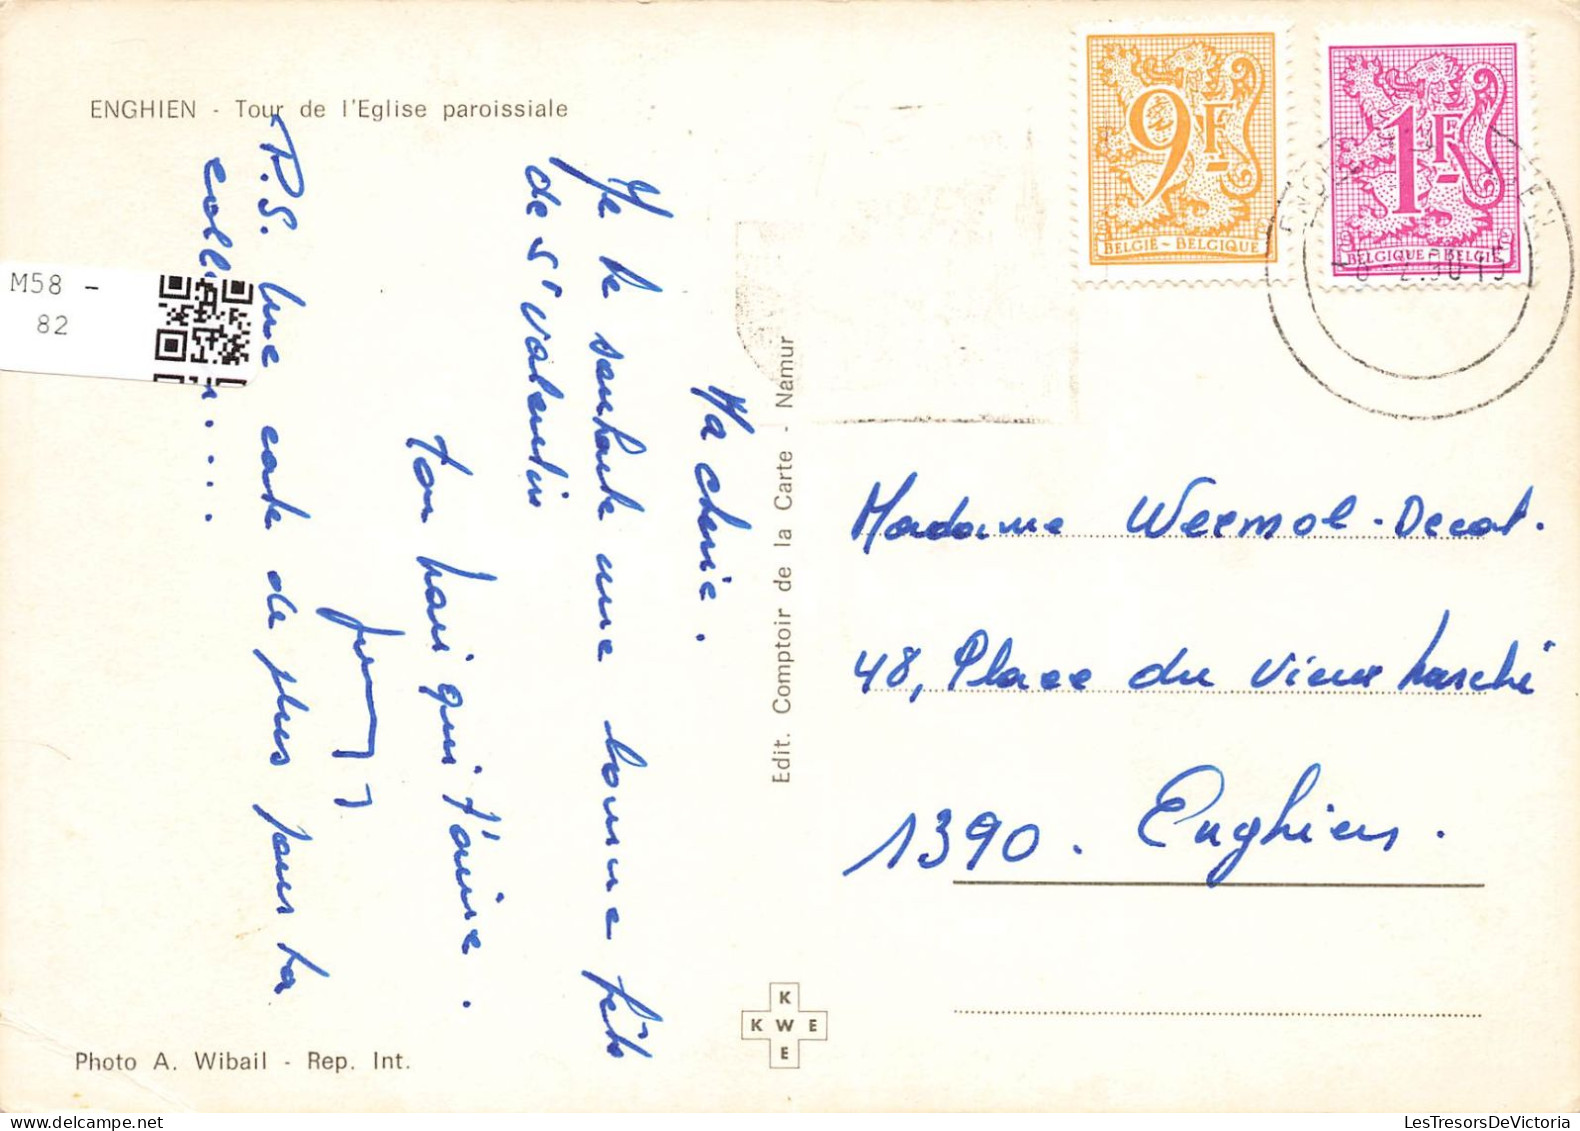 ENGHIEN - Tour de l'Eglise paroissiale
Ma cherie.
Je te souhaite une bonne fête
de St Valentin
Ton mari qui t'aime.
P.S. Une carte de plus pour ta
M58 -
82
Edit. Comptoir de la Carte - Namur
9F
BELGIË - BELGIQUE
1F
BELGIQUE - BELGIË
Madame Weemol - Decat.
48, Place du Vieux Marché
1390. Enghien.
K
K W E
E
Photo A. Wibail - Rep. Int.
LesTresorsDeVictoria.com